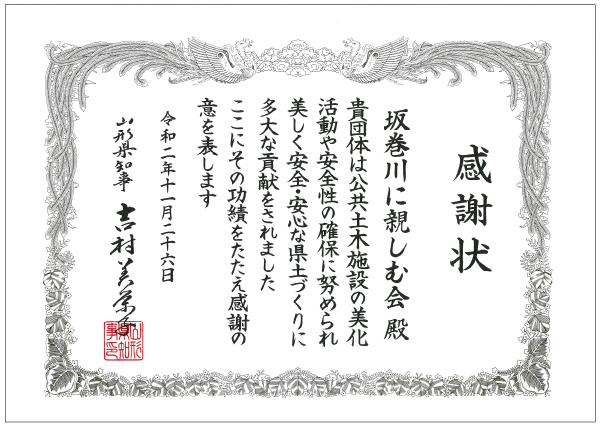 感謝状
坂巻川に親しむ会 殿
貴団体は公共土木施設の美化
活動や安全性の確保に努められ
美しく安全・安心な県土づくりに
多大な貢献をされました
ここにその功績をたたえ感謝の
意を表します
令和二年十一月二十六日
山形県知事 吉村美栄子
山形
県知
事印